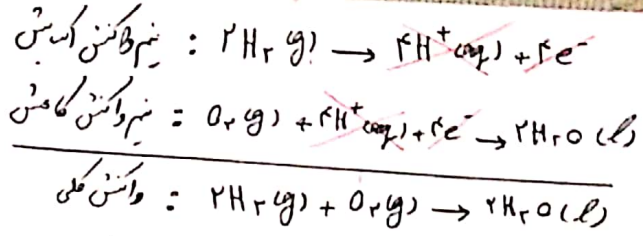 نیم واکنش اکسایش : ۲H۲(g) → ۴H+(aq) + ۴e-
نیم واکنش کاهش : O۲(g) + ۴H+(aq) + ۴e- → ۲H۲O(l)
واکنش کلی : ۲H۲(g) + O۲(g) → ۲H۲O(l)